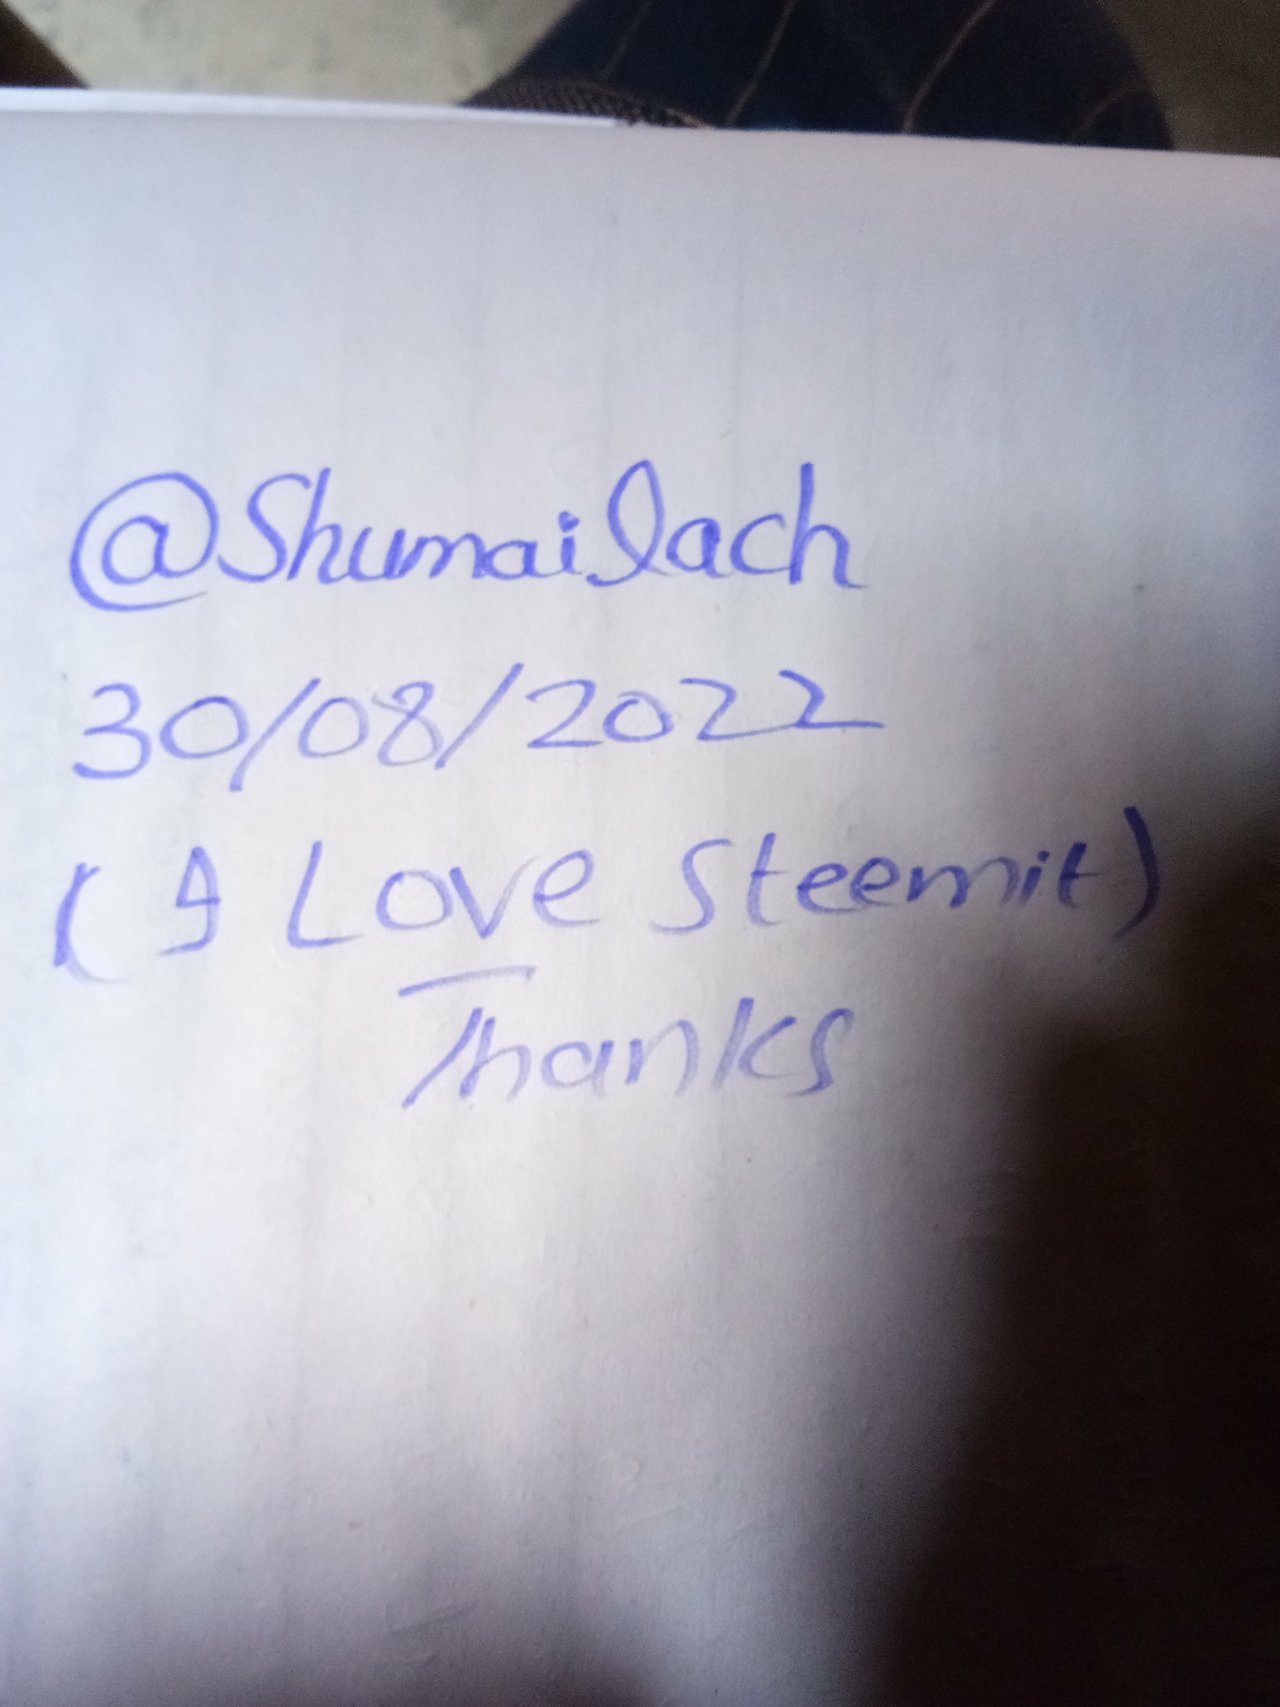 @Shumailach
30/08/2022
(I Love Steemit)
Thanks